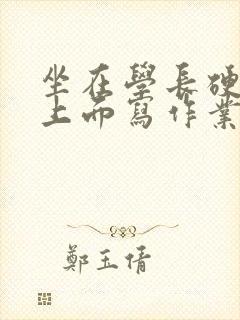 坐在學長硬
上而寫作業
鄭玉倩